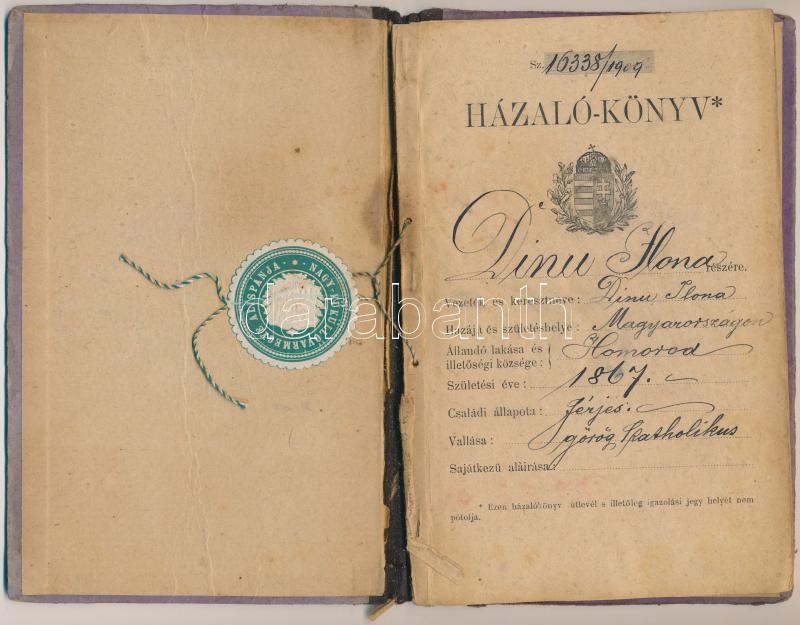 NAGY-KÜKÜLLŐVÁRMEGYE ALISPÁNJA
Sz. 16338/1909
HÁZALÓ-KÖNYV*
Dinu Ilona részére.
Vezeték és keresztneve: Dinu Ilona
Hazája és születéshelye: Magyarországon
Állandó lakása és
illetőségi községe: Homorod
Születési éve: 1867.
Családi állapota: férjes.
Vallása: görög katholikus
Sajátkezű aláírása:
* Ezen házalókönyv útlevél s illetőleg igazolási jegy helyét nem
pótolja.
darabanth